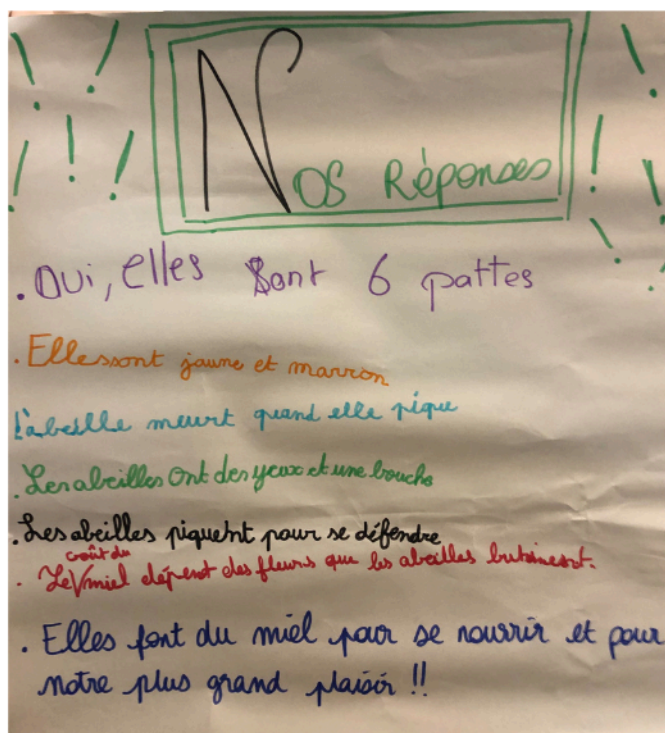 Nos Réponses
. Oui, elles sont 6 pattes
. Elles sont jaune et marron
L'abeille meurt quand elle pique
. Les abeilles ont des yeux et une bouche
. Les abeilles piquent pour se défendre
goût du
. Le V miel dépent des fleurs que les abeilles butinent.
. Elles font du miel pour se nourrir et pour
notre plus grand plaisir !!